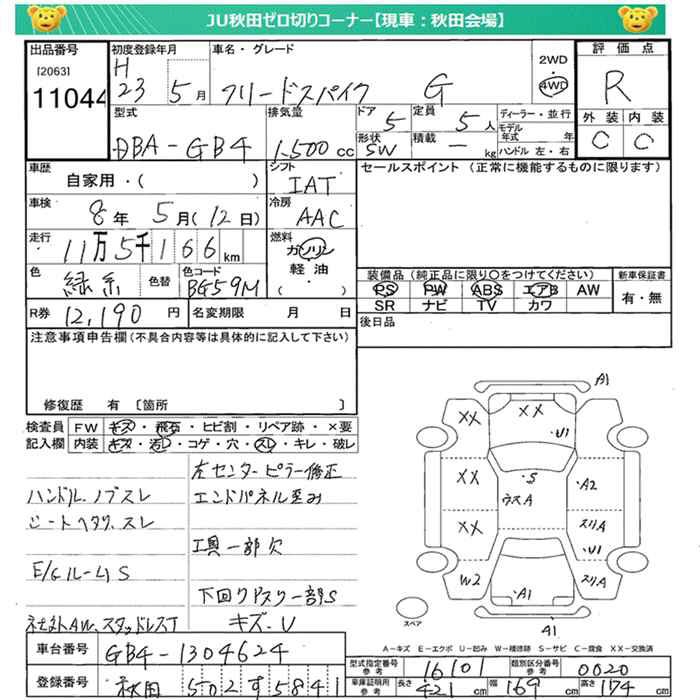 JU秋田ゼロ切りコーナー【現車:秋田会場】
出品番号 初度登録年月 車名・グレード 2WD 4WD 評価点
[2063] H
11044 23 5月 フリードスパイク G R
型式 排気量 ドア 5 定員 5人 ディーラー・並行 外装 内装
DBA-GB4 1,500cc 形状 SW 積載 - kg モデル年式 年 C C
ハンドル 左・右
車歴 シフト セールスポイント (正常に機能するものに限ります)
自家用・( ) IAT
車検 冷房
8年 5月(12日) AAC
走行 燃料
11万5千166km ガソリン
軽油
( )
色 緑系 色替 色コード BG59M
装備品(純正品に限り○をつけてください) 新車保証書
PS PW ABS エアB AW 有・無
SR ナビ TV カワ
R券 12,190円 名変期限 月 日 後日品
注意事項申告欄(不具合内容等は具体的に記入して下さい)
修復歴 有 〔箇所 〕
検査員 FW キズ・飛石・ヒビ割・リペア跡・×要
記入欄 内装 キズ・汚レ・コゲ・穴・スレ・キレ・破レ
左センターピラー修正
ハンドル、ノブスレ エンドパネル歪み
シートヘタリ、スレ
工具一部欠
E/GルームS
下回りPスリ一部S
社外AW、スタッドレスT キズ・U
A1
XX XX
U1
XX S A2
ウスA
XX スリA
U1
W2 A1 スリA
スペア A1
A-キズ E-エクボ U-凹み W-補修跡 S-サビ C-腐食 XX-交換済
車台番号 GB4-1304624
型式指定番号 参考 16101 類別区分番号 参考 0020
登録番号 秋田 502 す 5841
車庫証明用 参考 長さ 421cm 幅 169cm 高さ 174cm